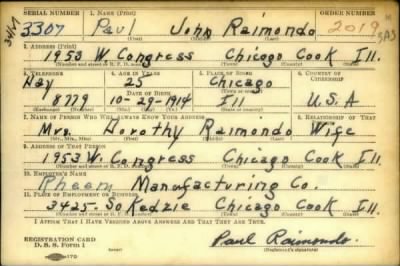 SERIAL NUMBER 1. NAME (Print) ORDER NUMBER
3307 Paul John Raimondo 2019
(First) (Middle) (Last)
2. ADDRESS (Print)
1953 W. Congress Chicago Cook Ill.
(Number and street or R. F. D. number) (Town) (County) (State)
3. TELEPHONE 4. AGE IN YEARS 5. PLACE OF BIRTH 6. COUNTRY OF CITIZENSHIP
Hay 25 Chicago
(Exchange) DATE OF BIRTH (Town or county)
8779 10-29-1914 Ill U.S.A
(Number) (Mo.) (Day) (Yr.) (State or country)
7. NAME OF PERSON WHO WILL ALWAYS KNOW YOUR ADDRESS 8. RELATIONSHIP OF THAT PERSON
Mrs. Dorothy Raimondo Wife
(Mr., Mrs., Miss) (First) (Middle) (Last)
9. ADDRESS OF THAT PERSON
1953 W. Congress Chicago Cook Ill.
(Number and street or R. F. D. number) (Town) (County) (State)
10. EMPLOYER'S NAME
Rheem Manufacturing Co.
11. PLACE OF EMPLOYMENT OR BUSINESS
3425 So Kedzie Chicago Cook Ill.
(Number and street or R. F. D. number) (Town) (County) (State)
I AFFIRM THAT I HAVE VERIFIED ABOVE ANSWERS AND THAT THEY ARE TRUE.
REGISTRATION CARD
D. S. S. Form 1
Paul Raimondo.
(Registrant's signature)